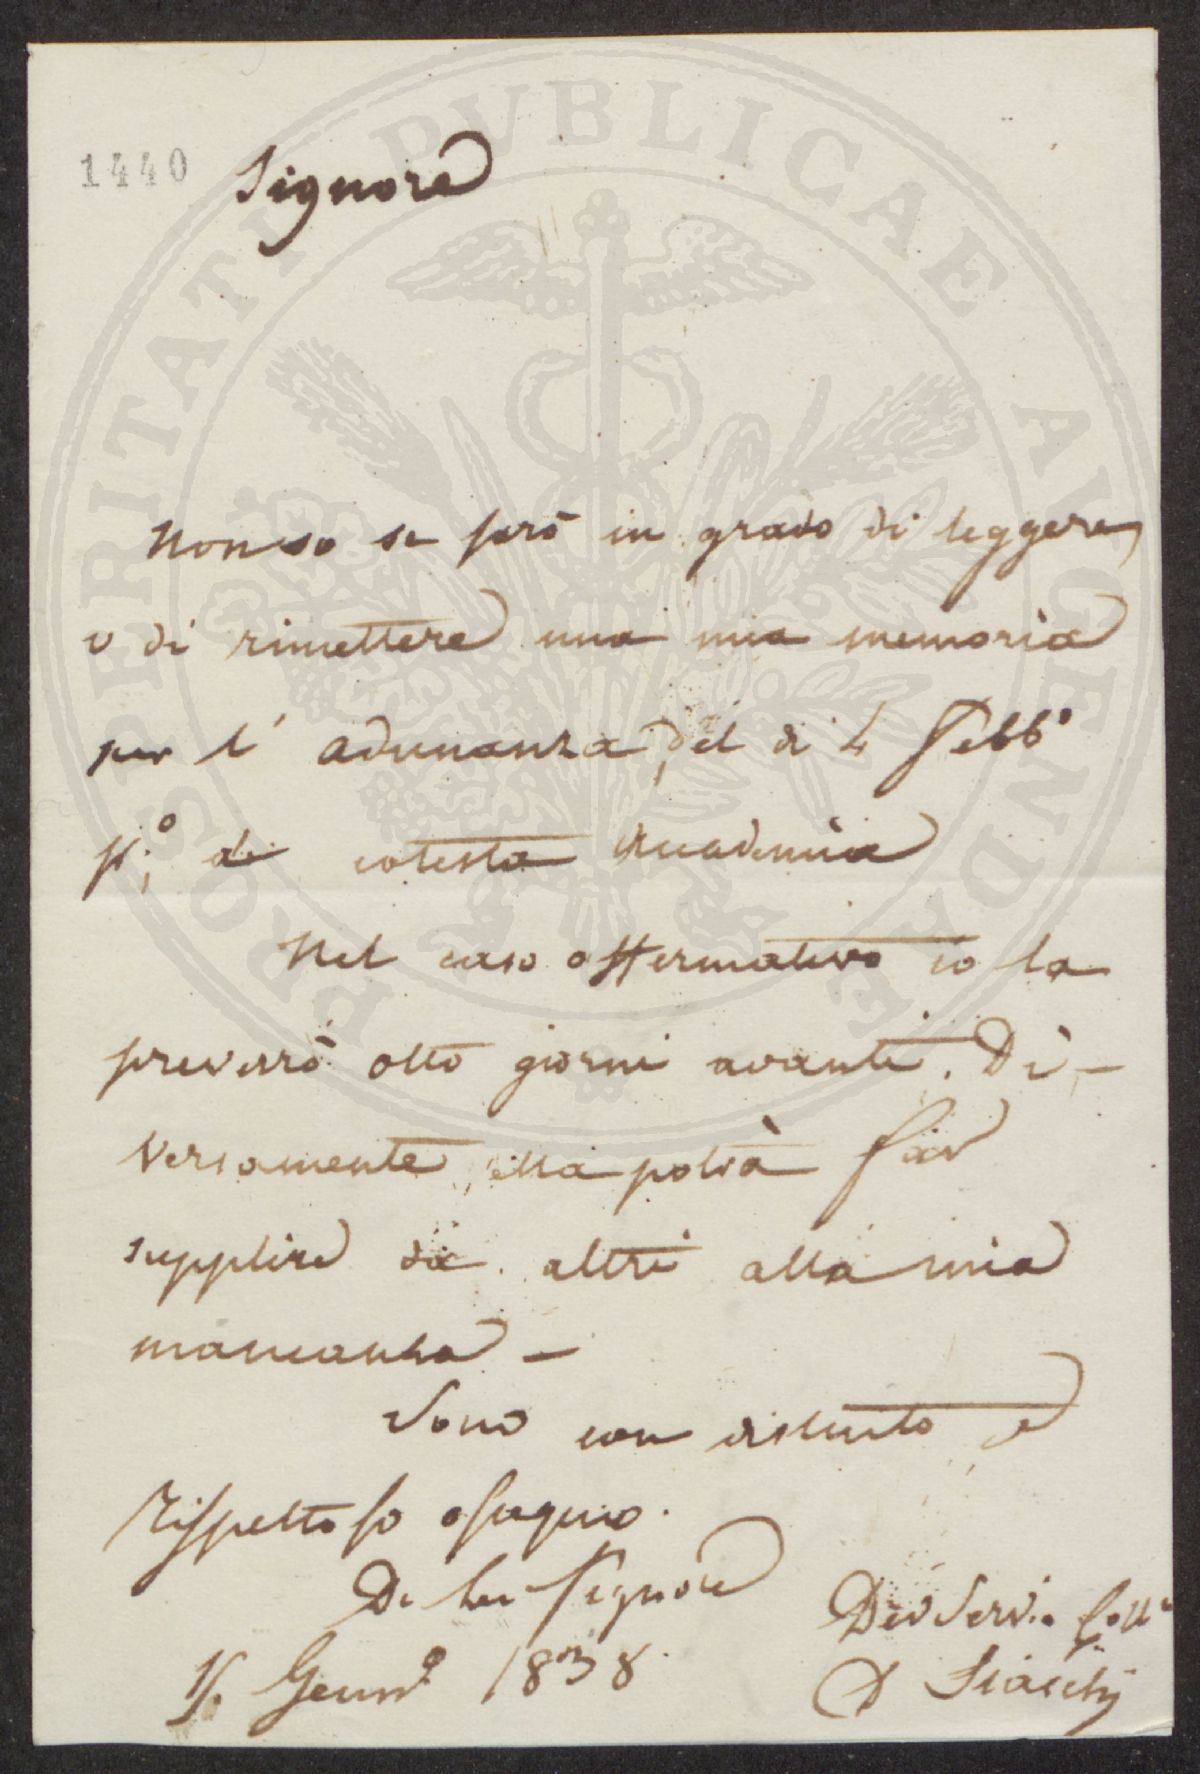 1440
Signore
Non so se sarò in grado di leggere,
o di rimettere una mia memoria
per l' adunanza del di 4 Febb°
p:° di cotesta Accademia
Nel caso affermativo io la
preverrò otto giorni avanti. Di-
versamente ella potrà far
supplire da altri alla mia
mancanza -
Sono con distinto e
rispettoso ossequio.
Di Lei Signore
Dev Serv.e Coll
Genn° 1838.
PROSPERITATI PUBLICAE AUGENDAE